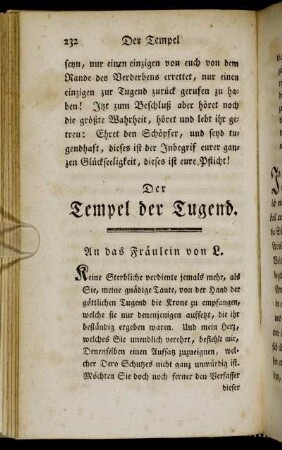 232 Der Tempel
seyn, nur einen einzigen von euch von dem
Rande des Verderbens errettet, nur einen
einzigen zur Tugend zurück gerufen zu ha-
ben! Itzt zum Beschluß aber höret noch
die größte Wahrheit, höret und lebt ihr ge-
treu: Ehret den Schöpfer, und seyd tu-
gendhaft, dieses ist der Inbegrif eurer gan-
zen Glückseeligkeit, dieses ist eure Pflicht!
Der
Tempel der Tugend.
An das Fräulein von L.
Keine Sterbliche verdiente jemals mehr, als
Sie, meine gnädige Tante, von der Hand der
göttlichen Tugend die Krone zu empfangen,
welche sie nur denenjenigen aufsetzt, die ihr
beständig ergeben waren. Und mein Herz,
welches Sie unendlich verehrt, befiehlt mir,
Denenselben einen Aufsatz zuzueignen, wel-
cher Dero Schutzes nicht ganz unwürdig ist.
Möchten Sie doch noch ferner den Verfasser
dieser